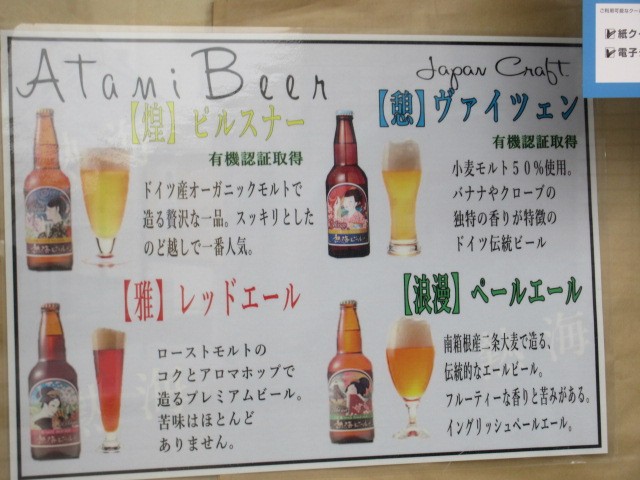 Atami Beer
Japan Craft
【煌】ピルスナー
有機認証取得
ドイツ産オーガニックモルトで
造る贅沢な一品。スッキリとした
のど越しで一番人気。
【憩】ヴァイツェン
有機認証取得
小麦モルト50%使用。
バナナやクローブの
独特の香りが特徴の
ドイツ伝統ビール
【雅】レッドエール
ローストモルトの
コクとアロマホップで
造るプレミアムビール。
苦味はほとんど
ありません。
【浪漫】ペールエール
南箱根産二条大麦で造る、
伝統的なエールビール。
フルーティーな香りと苦みがある。
イングリッシュペールエール。
熱海ビール
熱海ビール
熱海ビール
熱海ビール
紙ク
電子